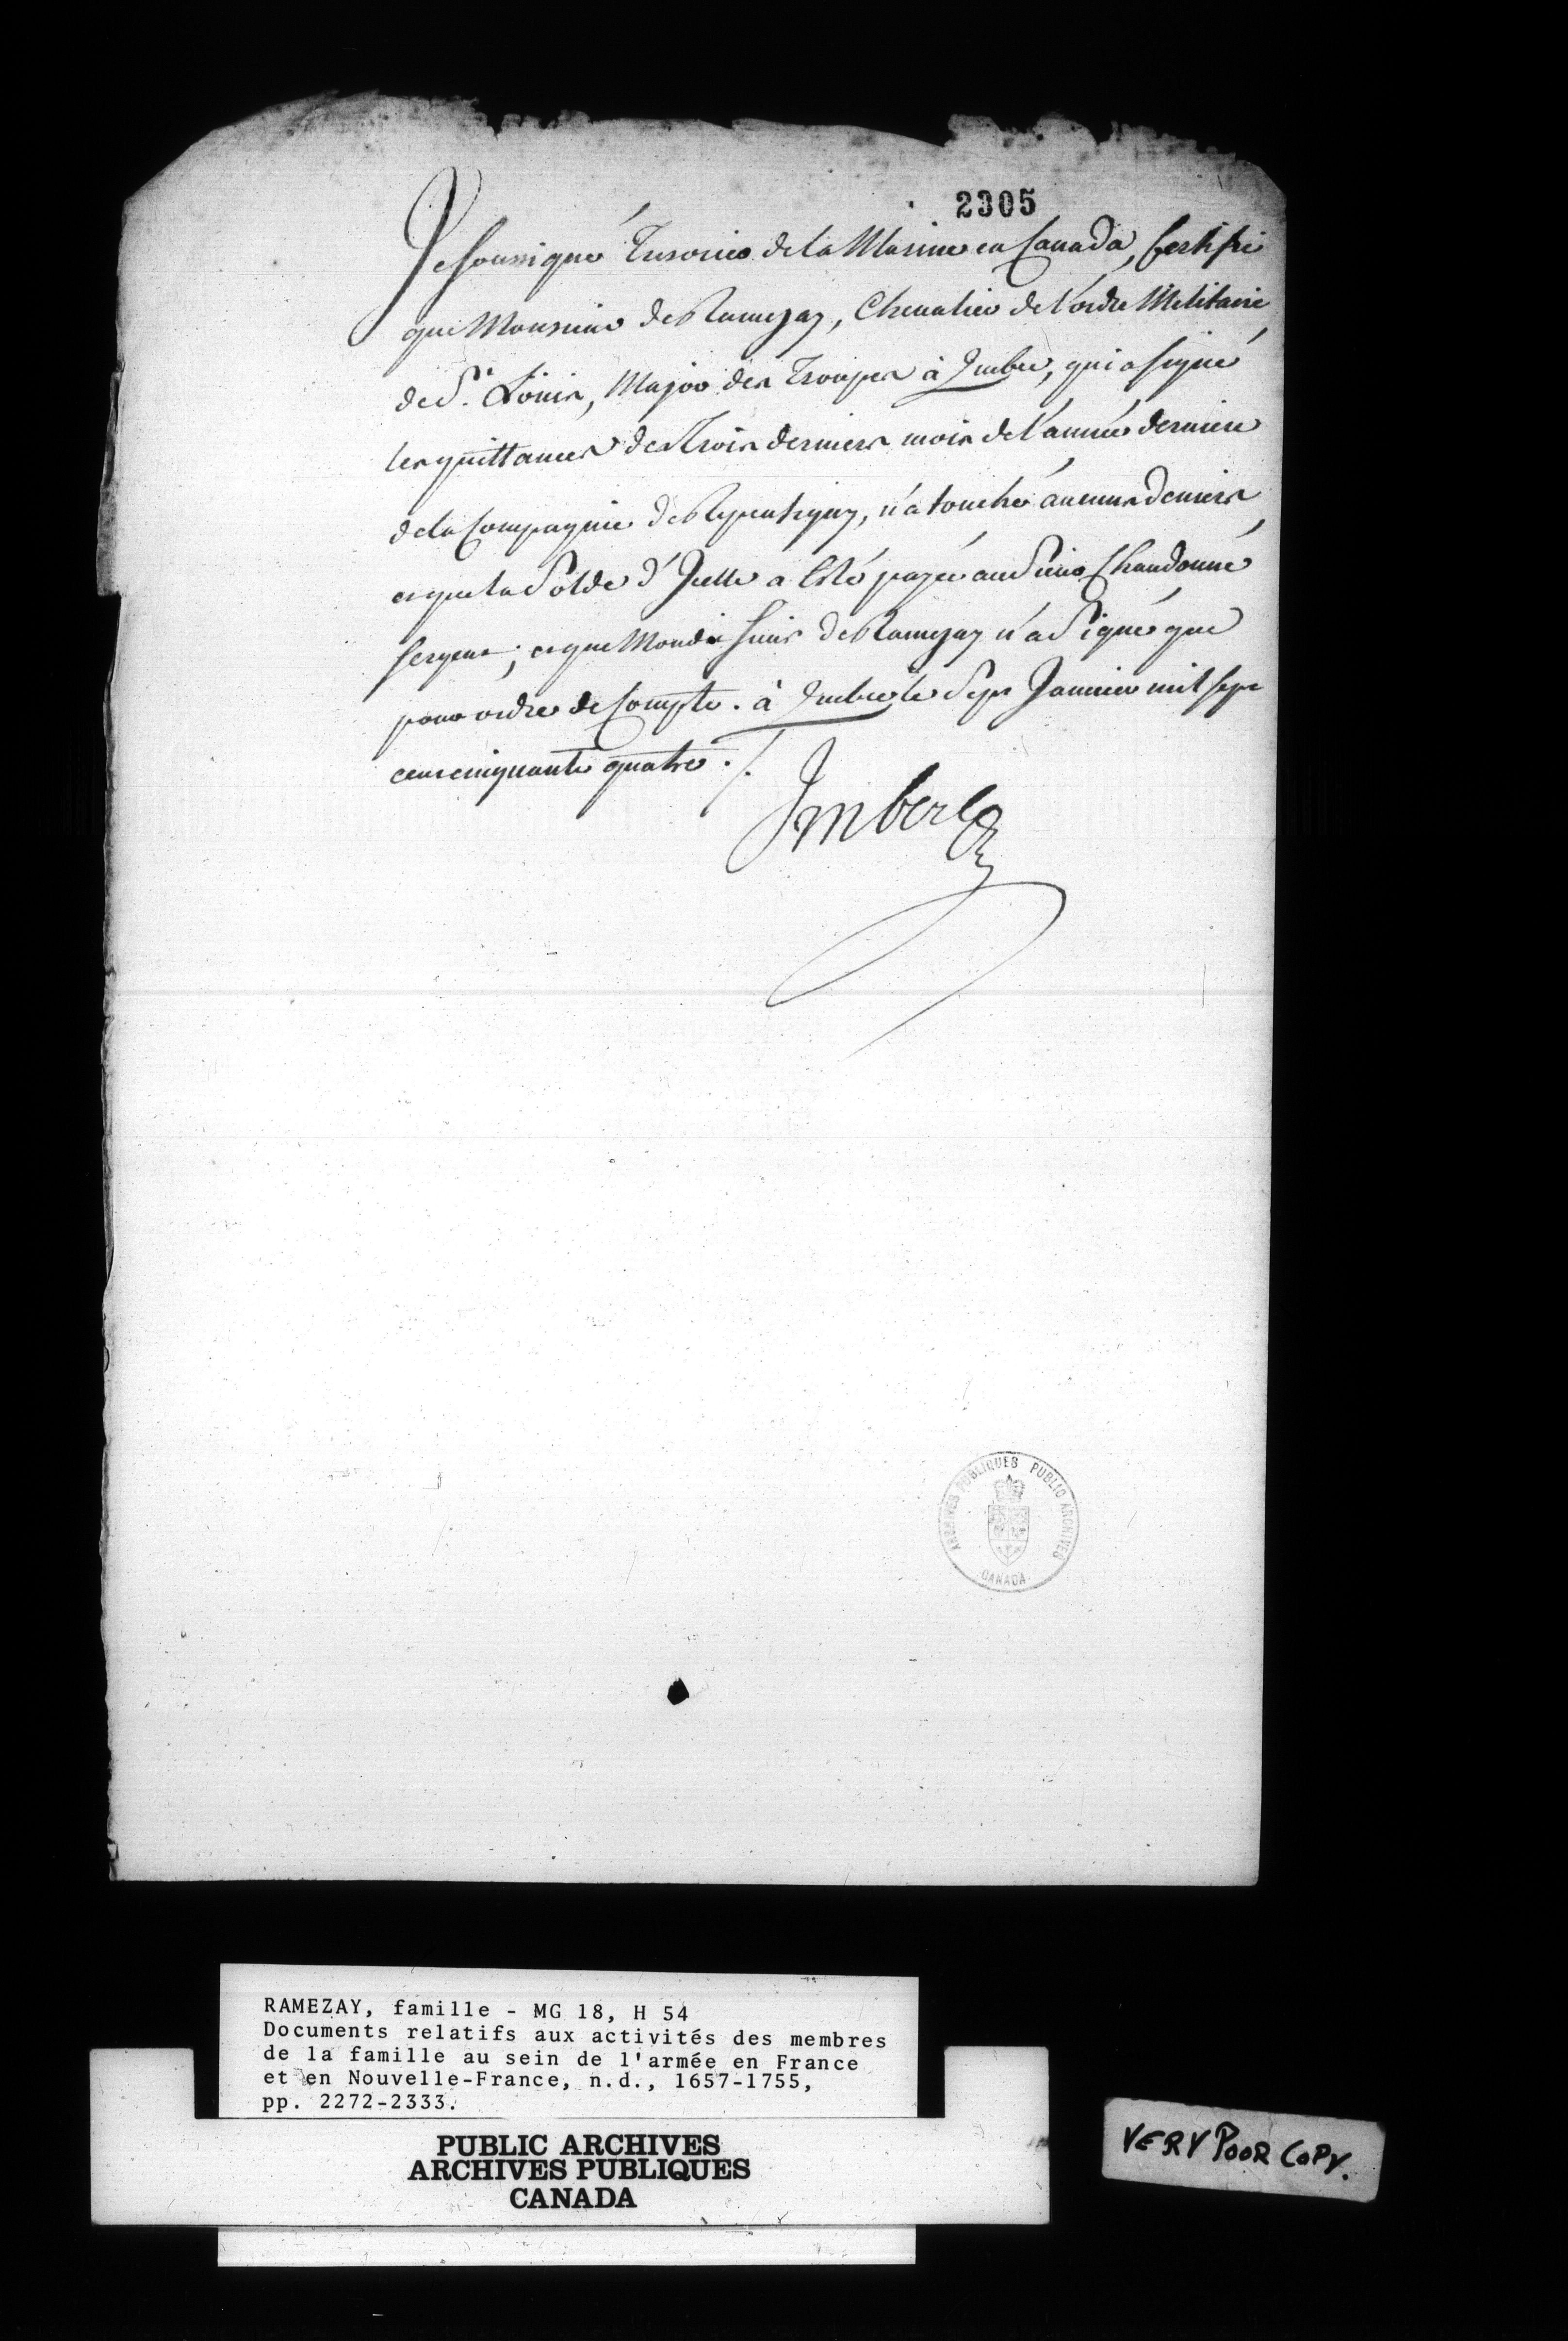 2305
Je soussigné Tresorier de la Marine en Canada, Certifie
que Monsieur de Ramezay, Chevalier de l'ordre Militaire
de St. Loüis, Major des Troupes à Quebec, qui a signé
les quittances des Trois derniers mois de l'année derniere
de la Compagnie De Repentigny, n'a touché aucuns deniers
et que la Solde d'Icelle a Esté payée au Sieur Chaudonné
sergent; et que Mondit sieur De Ramezay n'a Signé que
pour ordre de Compte. à Quebec le Sept Janvier mil sept
cent cinquante quatre ./.
Imbert
ARCHIVES PUBLIQUES PUBLIC ARCHIVES
CANADA
RAMEZAY, famille - MG 18, H 54
Documents relatifs aux activités des membres
de la famille au sein de l'armée en France
et en Nouvelle-France, n.d., 1657-1755,
pp. 2272-2333.
PUBLIC ARCHIVES
ARCHIVES PUBLIQUES
CANADA
VERY POOR COPY.